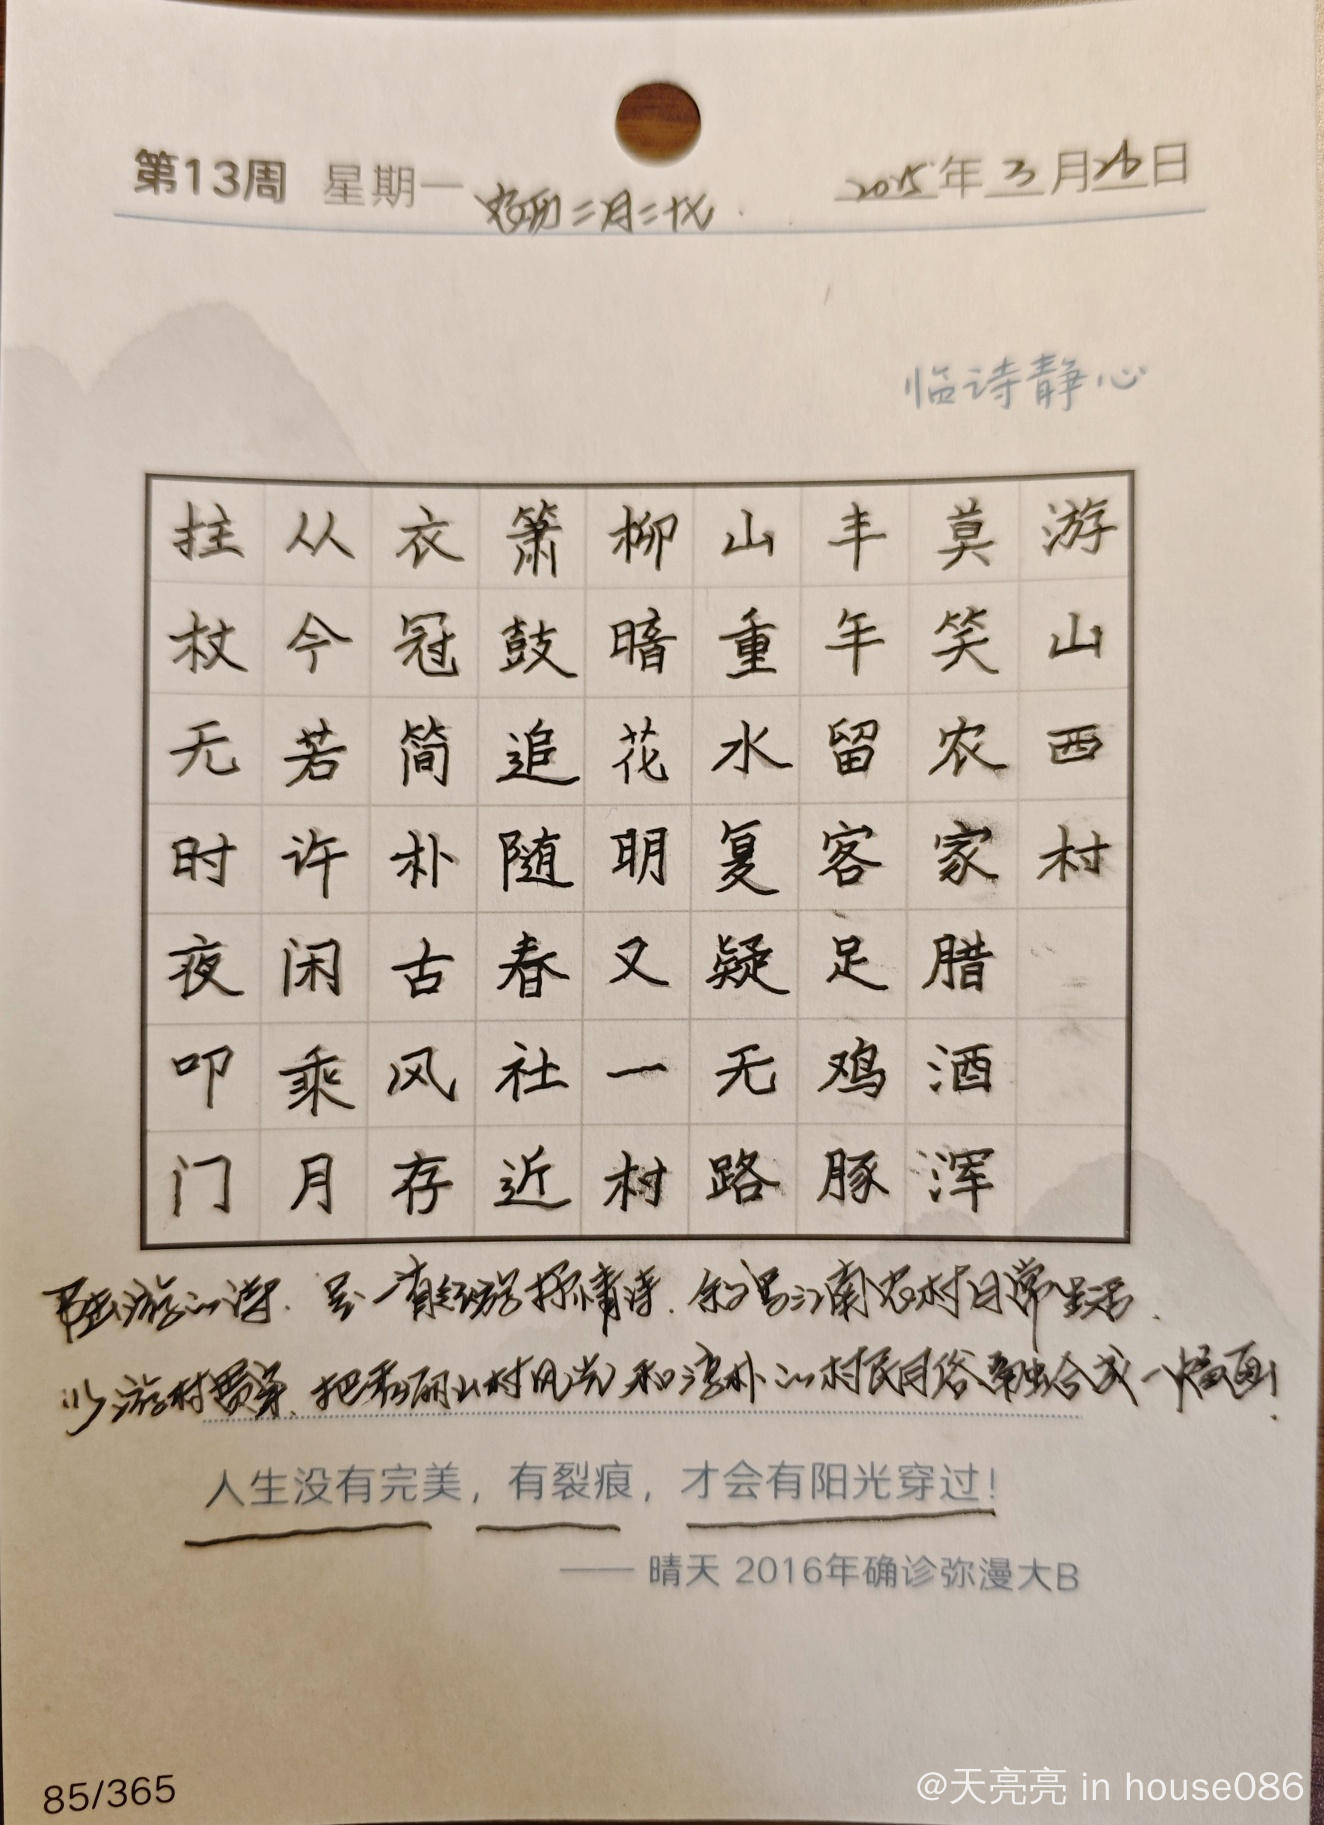 第13周 星期一 农历二月二十七 2025年3月26日
临诗静心
游山西村
莫笑农家腊酒浑
丰年留客足鸡豚
山重水复疑无路
柳暗花明又一村
箫鼓追随春社近
衣冠简朴古风存
从今若许闲乘月
拄杖无时夜叩门
陆游的诗.是一首纪游抒情诗.叙写江南农村日常生活.
以游村贯穿.把秀丽山村风光和淳朴的村民习俗融合成一幅画.
人生没有完美，有裂痕，才会有阳光穿过！
—— 晴天 2016年确诊弥漫大B
85/365
@天亮亮 in house086